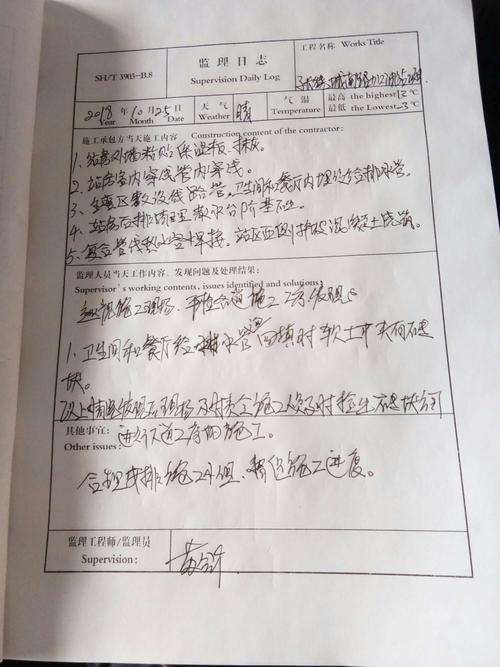 SH/T 3903-B.8
监理日志
Supervision Daily Log
工程名称 Works Title
2018 年 10 月 25 日
Year Month Date
天气 晴
Weather
气温
Temperature
最高 the highest 13 ℃
最低 the Lowest -3 ℃
施工承包方当天施工内容 Construction content of the contractor:
1、站房外墙粘贴保温板、抹灰。
2、站房室内穿线管内穿线。
3、生产区敷设线路管,卫生间和餐厅内埋设给排水管。
4、站房后排
5、复合管线热收套焊接。站区西侧护坡混凝土浇筑。
监理人员当天工作内容、发现问题及处理结果:
Supervisor's working contents, issues identified and solutions:
巡视施工现场,平检各道施工工序发现:
1、卫生间和餐厅给排水管沟回填时软土中夹有
块。
以上情况发现后现场及时责令施工人员及时检出 块后可
其他事宜: 进行下道工序的施工。
Other issues:
合理安排施工小组,督促施工进度。
监理工程师/监理员
Supervision: